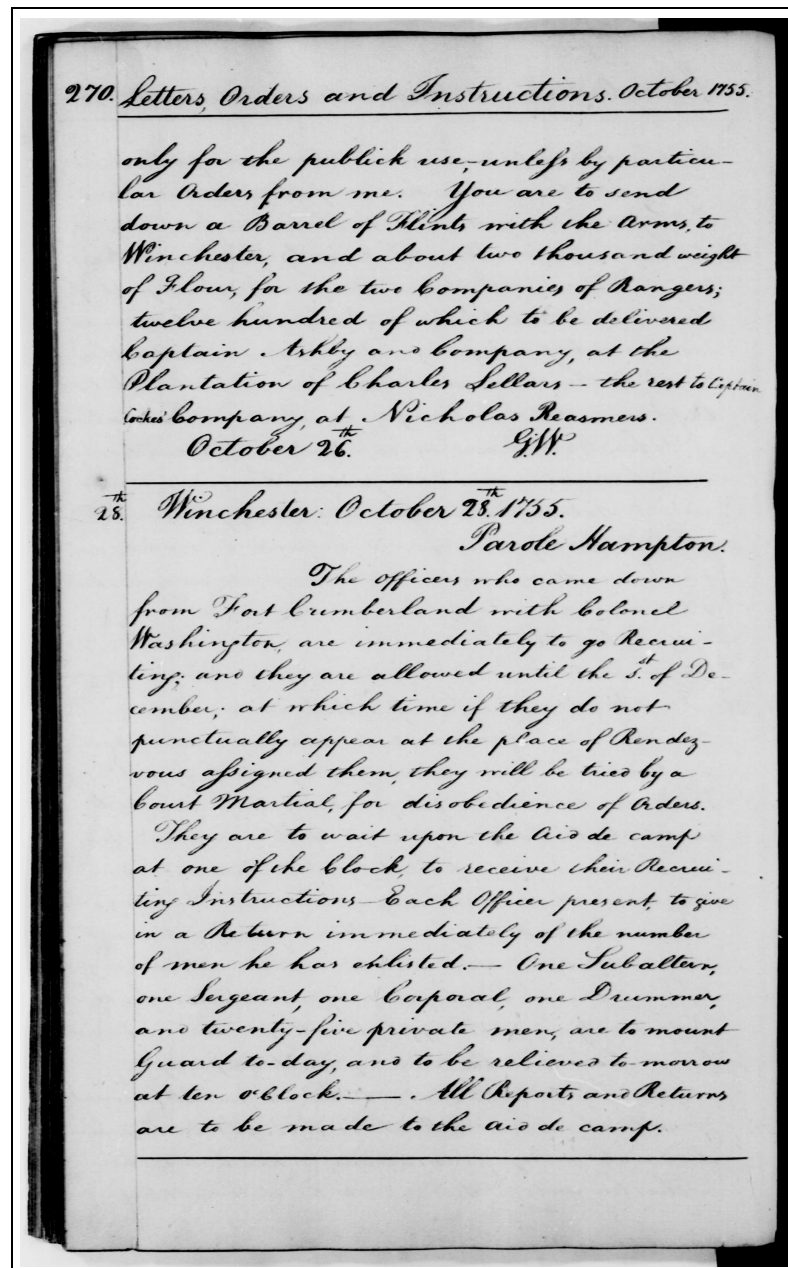 270. Letters, Orders and Instructions. October 1755.
only for the publick use,-unless by particu-
lar Orders from me. You are to send
down a Barrel of Flints with the Arms, to
Winchester, and about two thousand weight
of Flour, for the two Companies of Rangers;
twelve hundred of which to be delivered
Captain Ashby and Company, at the
Plantation of Charles Sellars - the rest to Captain
Cockes' Company, at Nicholas Reasmers.
October 26.th G.W.
28.th Winchester: October 28.th 1755.
Parole Hampton.
The Officers who came down
from Fort Cumberland with Colonel
Washington, are immediately to go Recrui-
ting; and they are allowed until the 1.st of De-
cember; at which time if they do not
punctually appear at the place of Rendez-
vous assigned them, they will be tried by a
Court Martial, for disobedience of Orders.
They are to wait upon the Aid de camp
at one of the Clock, to receive their Recrui-
ting Instructions - Each Officer present, to give
in a Return immediately of the number
of men he has enlisted. — One Subaltern,
one Sergeant, one Corporal, one Drummer,
and twenty-five private men, are to mount
Guard to-day, and to be relieved to-morrow
at ten o'Clock. —— . All Reports and Returns
are to be made to the aid de camp.